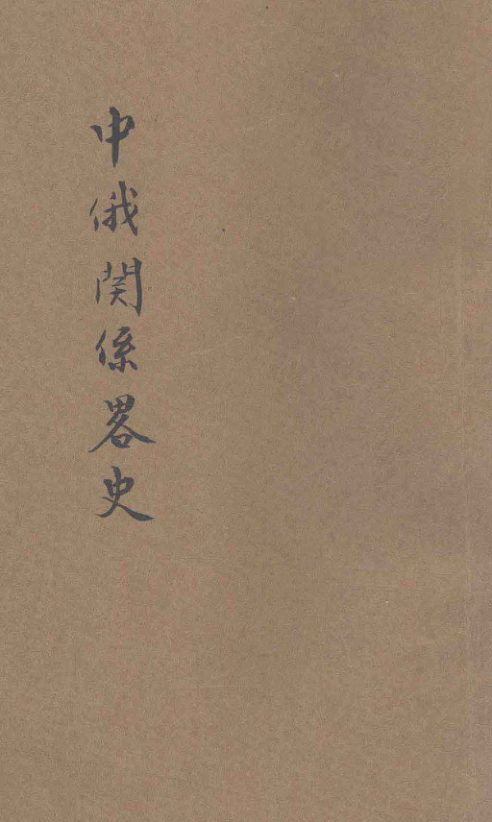 中俄関係畧史